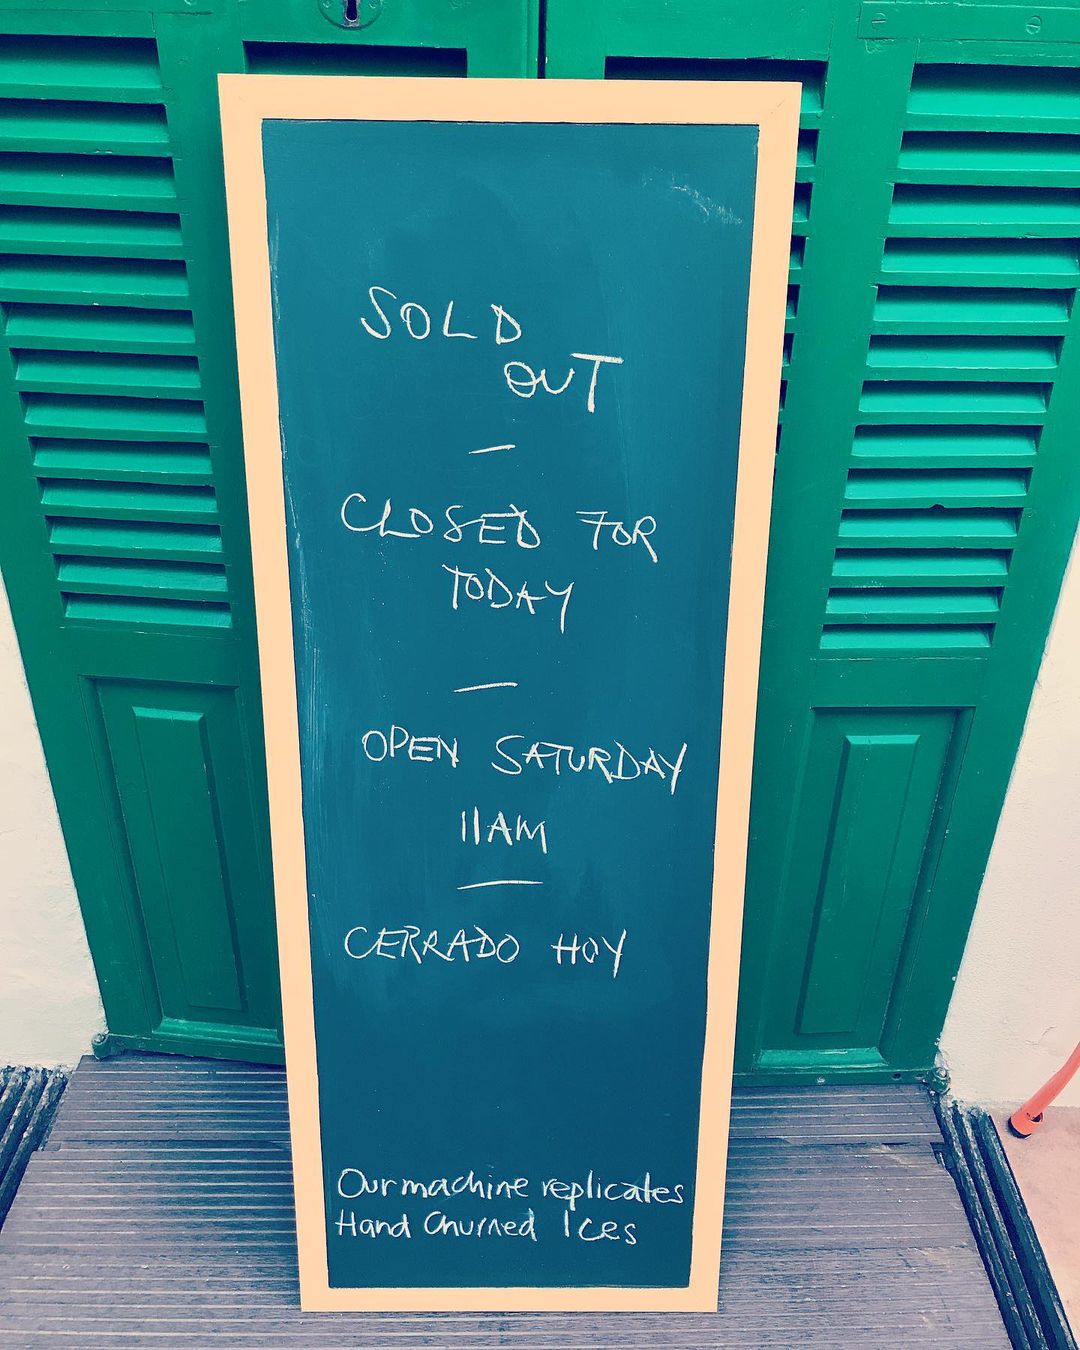 SOLD
OUT
—
CLOSED FOR
TODAY
—
OPEN SATURDAY
11AM
—
CERRADO HOY
Our machine replicates
Hand Churned Ices